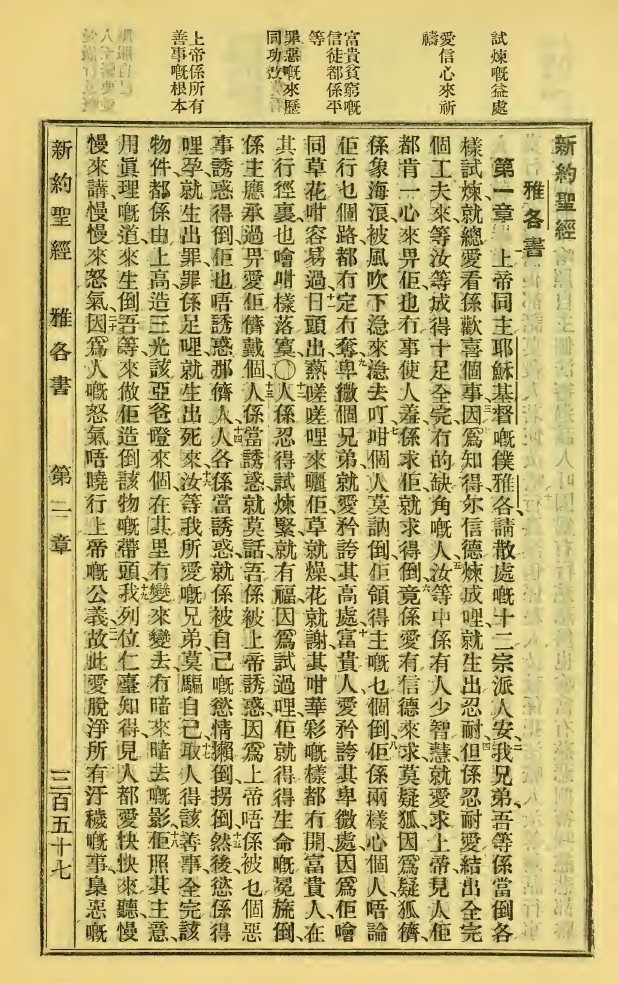 試煉嘅益處
愛信心來祈
禱
富貴貧窮嘅
信徒都係平
等
罪惡嘅來歷
同功效
上帝係所有
善事嘅根本
新約聖經
雅各書
第一章 上帝同主耶穌基督嘅僕雅各請散處嘅十二宗派人安、二我兄弟、吾等係當倒各
樣試煉、就總愛看係歡喜個事、三因爲知得尔信德煉成哩、就生出忍耐、四但係忍耐愛結出全完
個工夫來、等汝等成得十足全完、冇的缺角嘅人、五汝等中係有人少智慧、就愛求上帝、見人佢
都肯一心來畀佢、也冇事使人羞、係求佢就求得倒、六竟係愛有信德來求、莫疑狐、因爲疑狐儕
係象海浪被風吹下來去、七叮咁個人、莫訥倒佢領得主嘅乜個倒、八佢係兩樣心個人、唔論
佢行乜個路都冇定冇奪、九卑微個兄弟、就愛矜誇其高處、十富貴人愛矜誇其卑微處、因爲佢噲
同草花咁容易過、十一日頭出、爇嗟嗟哩來曬佢、草就燥、花就謝、其咁華彩嘅樣都冇開、富貴人在
其行徑裏也噲咁樣落寞、〇十二人係忍得試煉緊就有福、因爲試過哩、佢就得得生命嘅冕旒倒、
係主應承過畀愛佢儕戴個、十三人係當誘惑、就莫話吾係被上帝誘惑、因爲上帝唔係被乜個惡
事誘惑得倒、佢也唔誘惑那儕人、十四人各係當誘惑、就係被自己嘅慾情獺倒拐倒、十五然後慾係得
哩孕、就生出罪、罪係足哩、就生出死來、十六汝等我所愛嘅兄弟、莫騙自己、十七取人得該善事全完該
物件、都係由上高造三光該亞爸嶝來個、在其里冇變來變去、冇暗來暗去嘅影、十八佢照其主意、
用眞理嘅道來生倒吾等、來做佢造倒該物嘅帶頭、十九我列位仁臺知得、見人都愛快快來聽、慢
慢來講、慢慢來怒氣、二十因爲人嘅怒氣、唔曉行上帝嘅公義、二一故此愛脫淨所有汙穢嘅事、臬惡嘅
新約聖經 雅各書 第一章 三百五十七